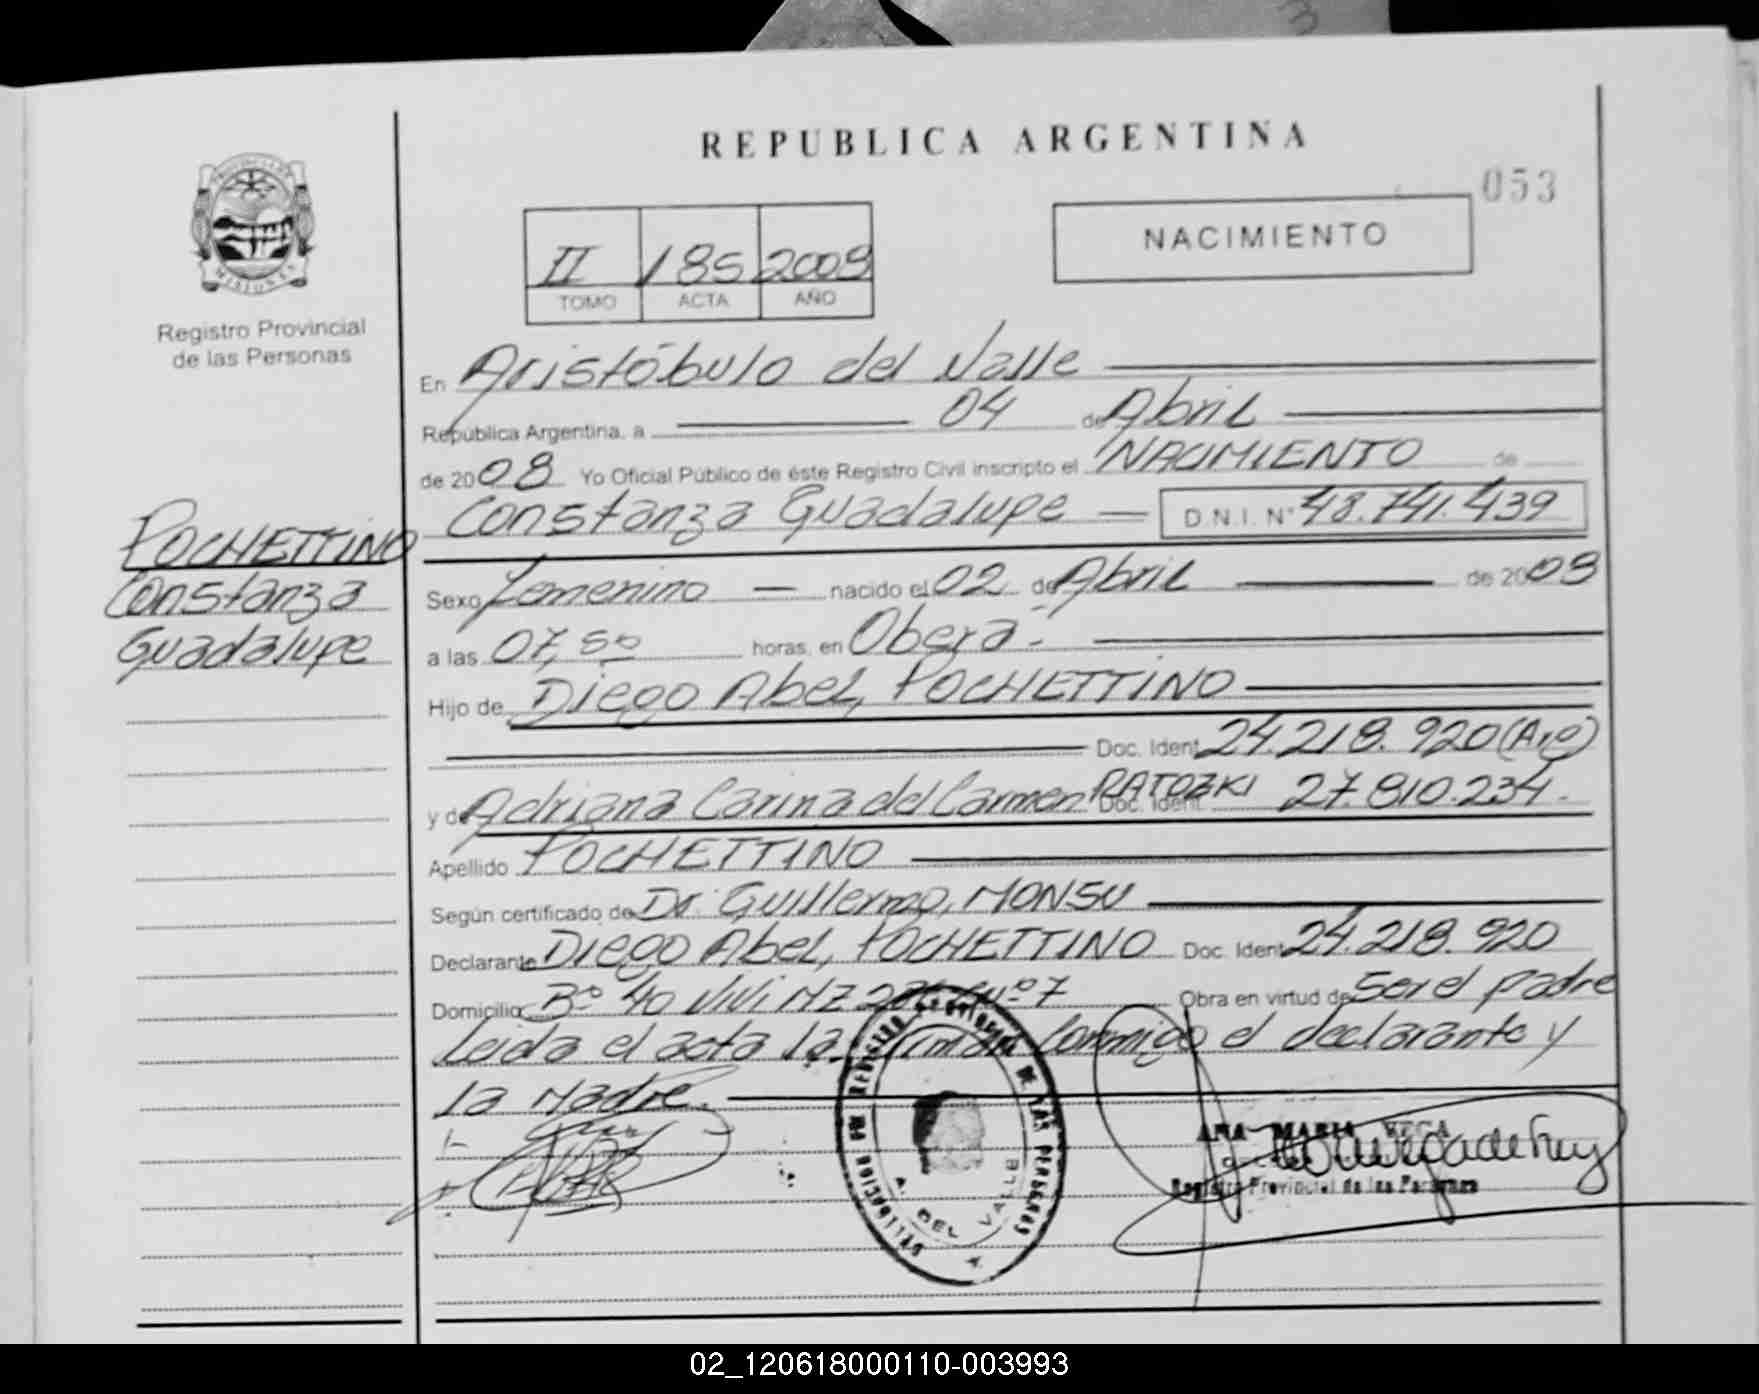 REPUBLICA ARGENTINA
053
PROVINCIA DE
MISIONES
Registro Provincial
de las Personas
II 185 2008
TOMO ACTA AÑO
NACIMIENTO
En Aristóbulo del Valle
República Argentina, a 04 de Abril
de 2008 Yo Oficial Público de éste Registro Civil inscripto el NACIMIENTO de
Constanza Guadalupe D.N.I. N° 48.741.439
POCHETTINO
Constanza
Guadalupe
Sexo Femenino nacido el 02 de Abril de 2008
a las 07,50 horas, en Oberá.
Hijo de Diego Abel, POCHETTINO
Doc. Ident. 24.218.920 (Arg)
y de Adriana Carina del Carmen RATOZKI Doc. Ident. 27.810.234.
Apellido POCHETTINO
Según certificado de Dr. Guillermo, MONSU
Declarante Diego Abel, POCHETTINO Doc. Ident. 24.218.920
Domicilio B° 40 ViVi MZ N° 7 Obra en virtud de Ser el padre
Leida el acta la firman conmigo el declarante y
la Madre.
REGISTRO PROVINCIAL DE LAS PERSONAS
A. DEL VALLE
ANA MARIA VEGA
Registro Provincial de las Personas
02_120618000110-003993